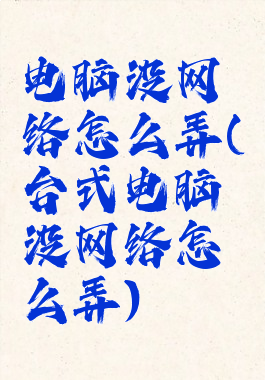 电脑没网
络怎么弄(
台式电脑
没网络怎
么弄)